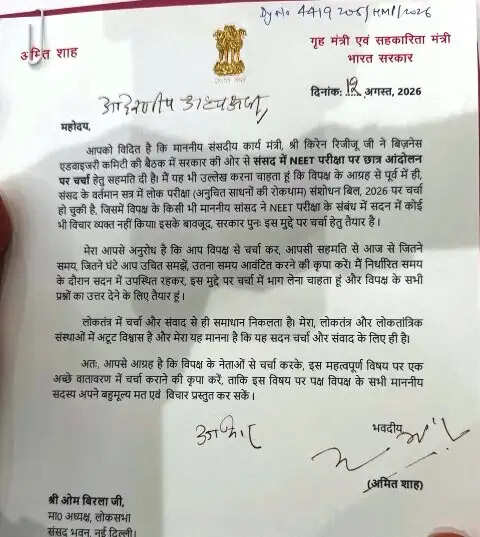 Dy No. 4419 205/HMI/2026
अमित शाह
गृह मंत्री एवं सहकारिता मंत्री
भारत सरकार
दिनांक: 12 अगस्त, 2026
आदरणीय अध्यक्षजी,
महोदय,
आपको विदित है कि माननीय संसदीय कार्य मंत्री, श्री किरेन रिजिजू जी ने बिज़नेस
एडवाइजरी कमिटी की बैठक में सरकार की ओर से संसद में NEET परीक्षा पर छात्र आंदोलन
पर चर्चा हेतु सहमति दी है। मैं यह भी उल्लेख करना चाहता हूं कि विपक्ष के आग्रह से पूर्व में ही,
संसद के वर्तमान सत्र में लोक परीक्षा (अनुचित साधनों की रोकथाम) संशोधन बिल, 2026 पर चर्चा
हो चुकी है, जिसमें विपक्ष के किसी भी माननीय सांसद ने NEET परीक्षा के संबंध में सदन में कोई
भी विचार व्यक्त नहीं किया। इसके बावजूद, सरकार पुनः इस मुद्दे पर चर्चा हेतु तैयार है।
मेरा आपसे अनुरोध है कि आप विपक्ष से चर्चा कर, आपसी सहमति से आज से जितने
समय, जितने घंटे आप उचित समझें, उतना समय आवंटित करने की कृपा करें। मैं निर्धारित समय
के दौरान सदन में उपस्थित रहकर, इस मुद्दे पर चर्चा में भाग लेना चाहता हूं और विपक्ष के सभी
प्रश्नों का उत्तर देने के लिए तैयार हूं।
लोकतंत्र में चर्चा और संवाद से ही समाधान निकलता है। मेरा, लोकतंत्र और लोकतांत्रिक
संस्थाओं में अटूट विश्वास है और मेरा यह मानना है कि यह सदन चर्चा और संवाद के लिए ही है।
अतः, आपसे आग्रह है कि विपक्ष के नेताओं से चर्चा करके, इस महत्वपूर्ण विषय पर एक
अच्छे वातावरण में चर्चा कराने की कृपा करें, ताकि इस विषय पर पक्ष विपक्ष के सभी माननीय
सदस्य अपने बहुमूल्य मत एवं विचार प्रस्तुत कर सकें।
भवदीय
(अमित शाह)
श्री ओम बिरला जी,
मा0 अध्यक्ष, लोकसभा
संसद भवन, नई दिल्ली।